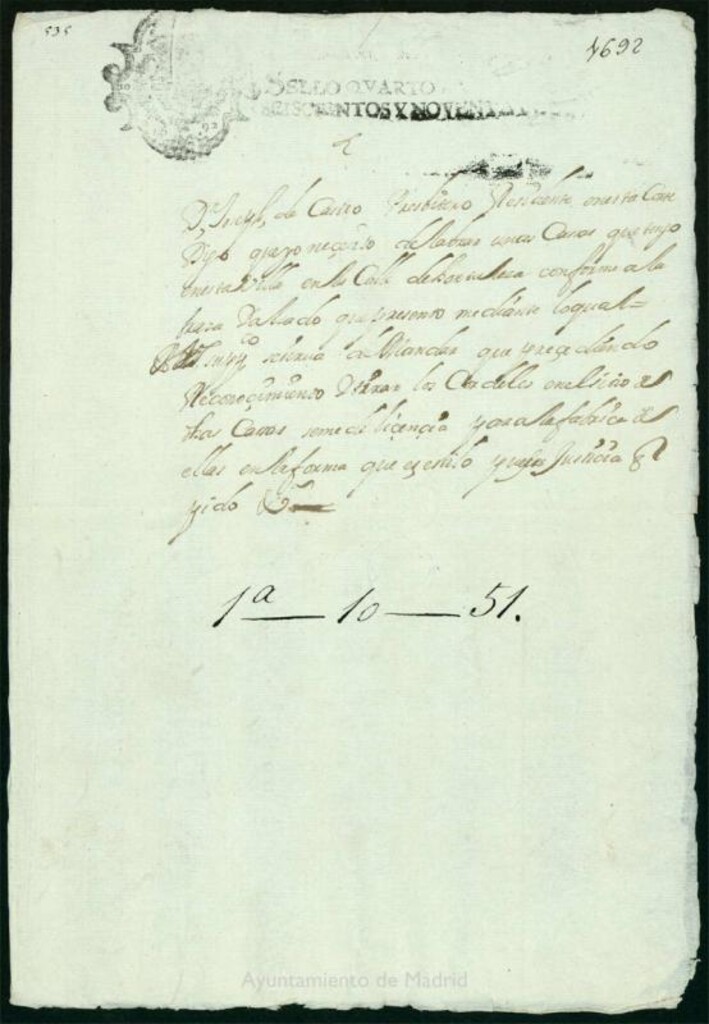 535
1692
SELLO QVARTO
SEISCIENTOS Y NOVENTA
Dn Joseph de Castro Presbitero Residente en esta Corte
Digo que yo neçesito de labrar unas Casas que tengo
en esta Villa en la Calle de hortaleza conforme a la
traza que presento mediante lo qual =
A V.m. supco se sirva de Mandar que preçediendo
Reconoçimiento y tirar los Cordeles en el sitio de
dhas Casas se me de liçençia para la fabrica de
ellas en la forma que es estilo Justicia que
pido &
1ª — 10 — 51.
Ayuntamiento de Madrid